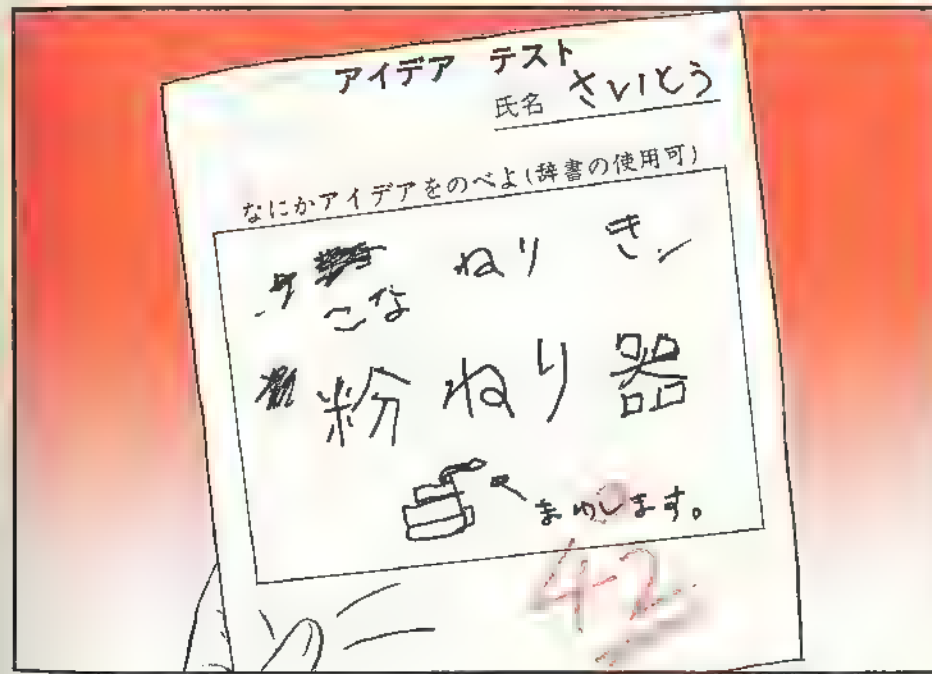 アイデア テスト
氏名 さいとう
なにかアイデアをのべよ(辞書の使用可)
こな ねり き
粉 ねり 器
まわします。
42